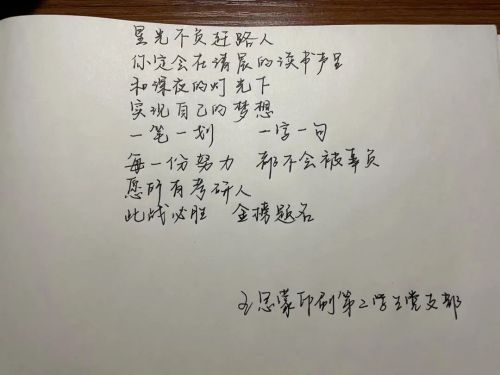 星光不负赶路人
你定会在清晨的读书声里
和深夜的灯光下
实现自己的梦想
一笔一划 一字一句
每一份努力 都不会被辜负
愿所有考研人
此战必胜 金榜题名
王思蒙印刷第二学生党支部